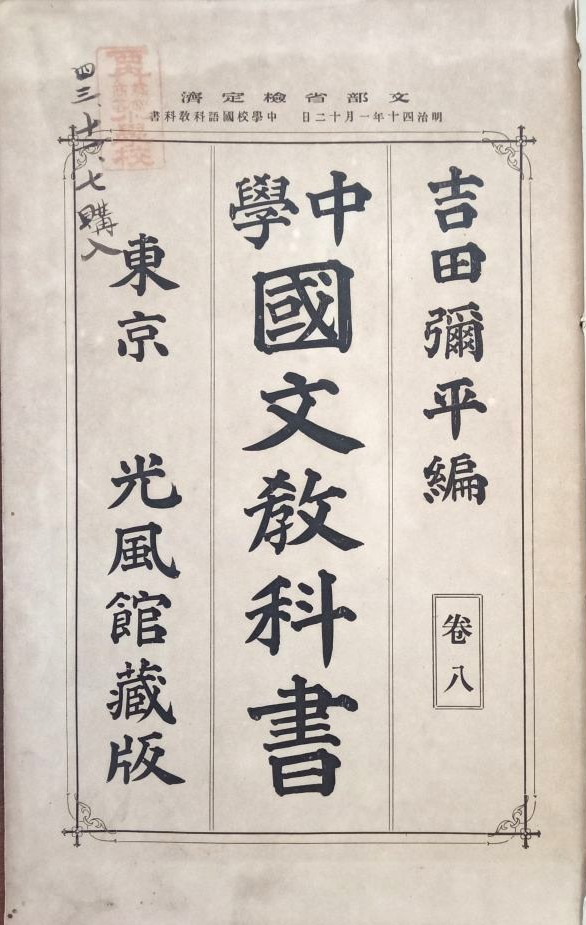 文部省檢定濟
明治四十年一月十二日 中學校國語科敎科書
吉田彌平編
卷八
中學
國文敎科書
東京 光風館藏版
四三、十一、七購入